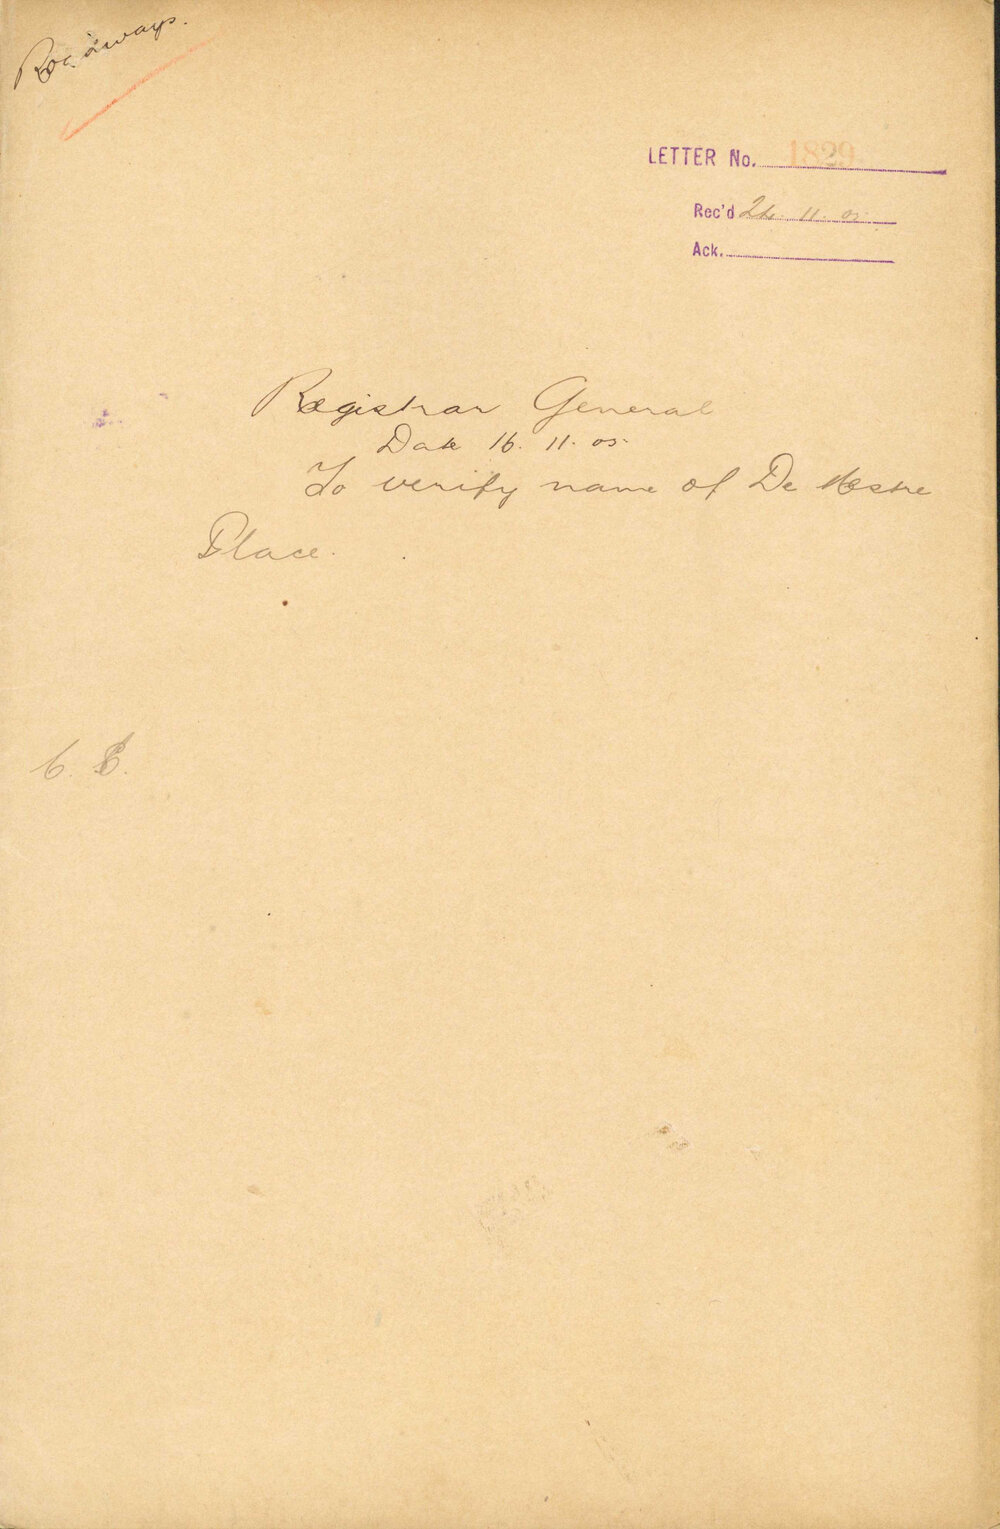 Roadways.
LETTER No. 1829
Rec'd 24. 11. 05.
Ack.
Registrar General
Date 16. 11. 05.
To verify name of De Mestre
Place.
C. S.